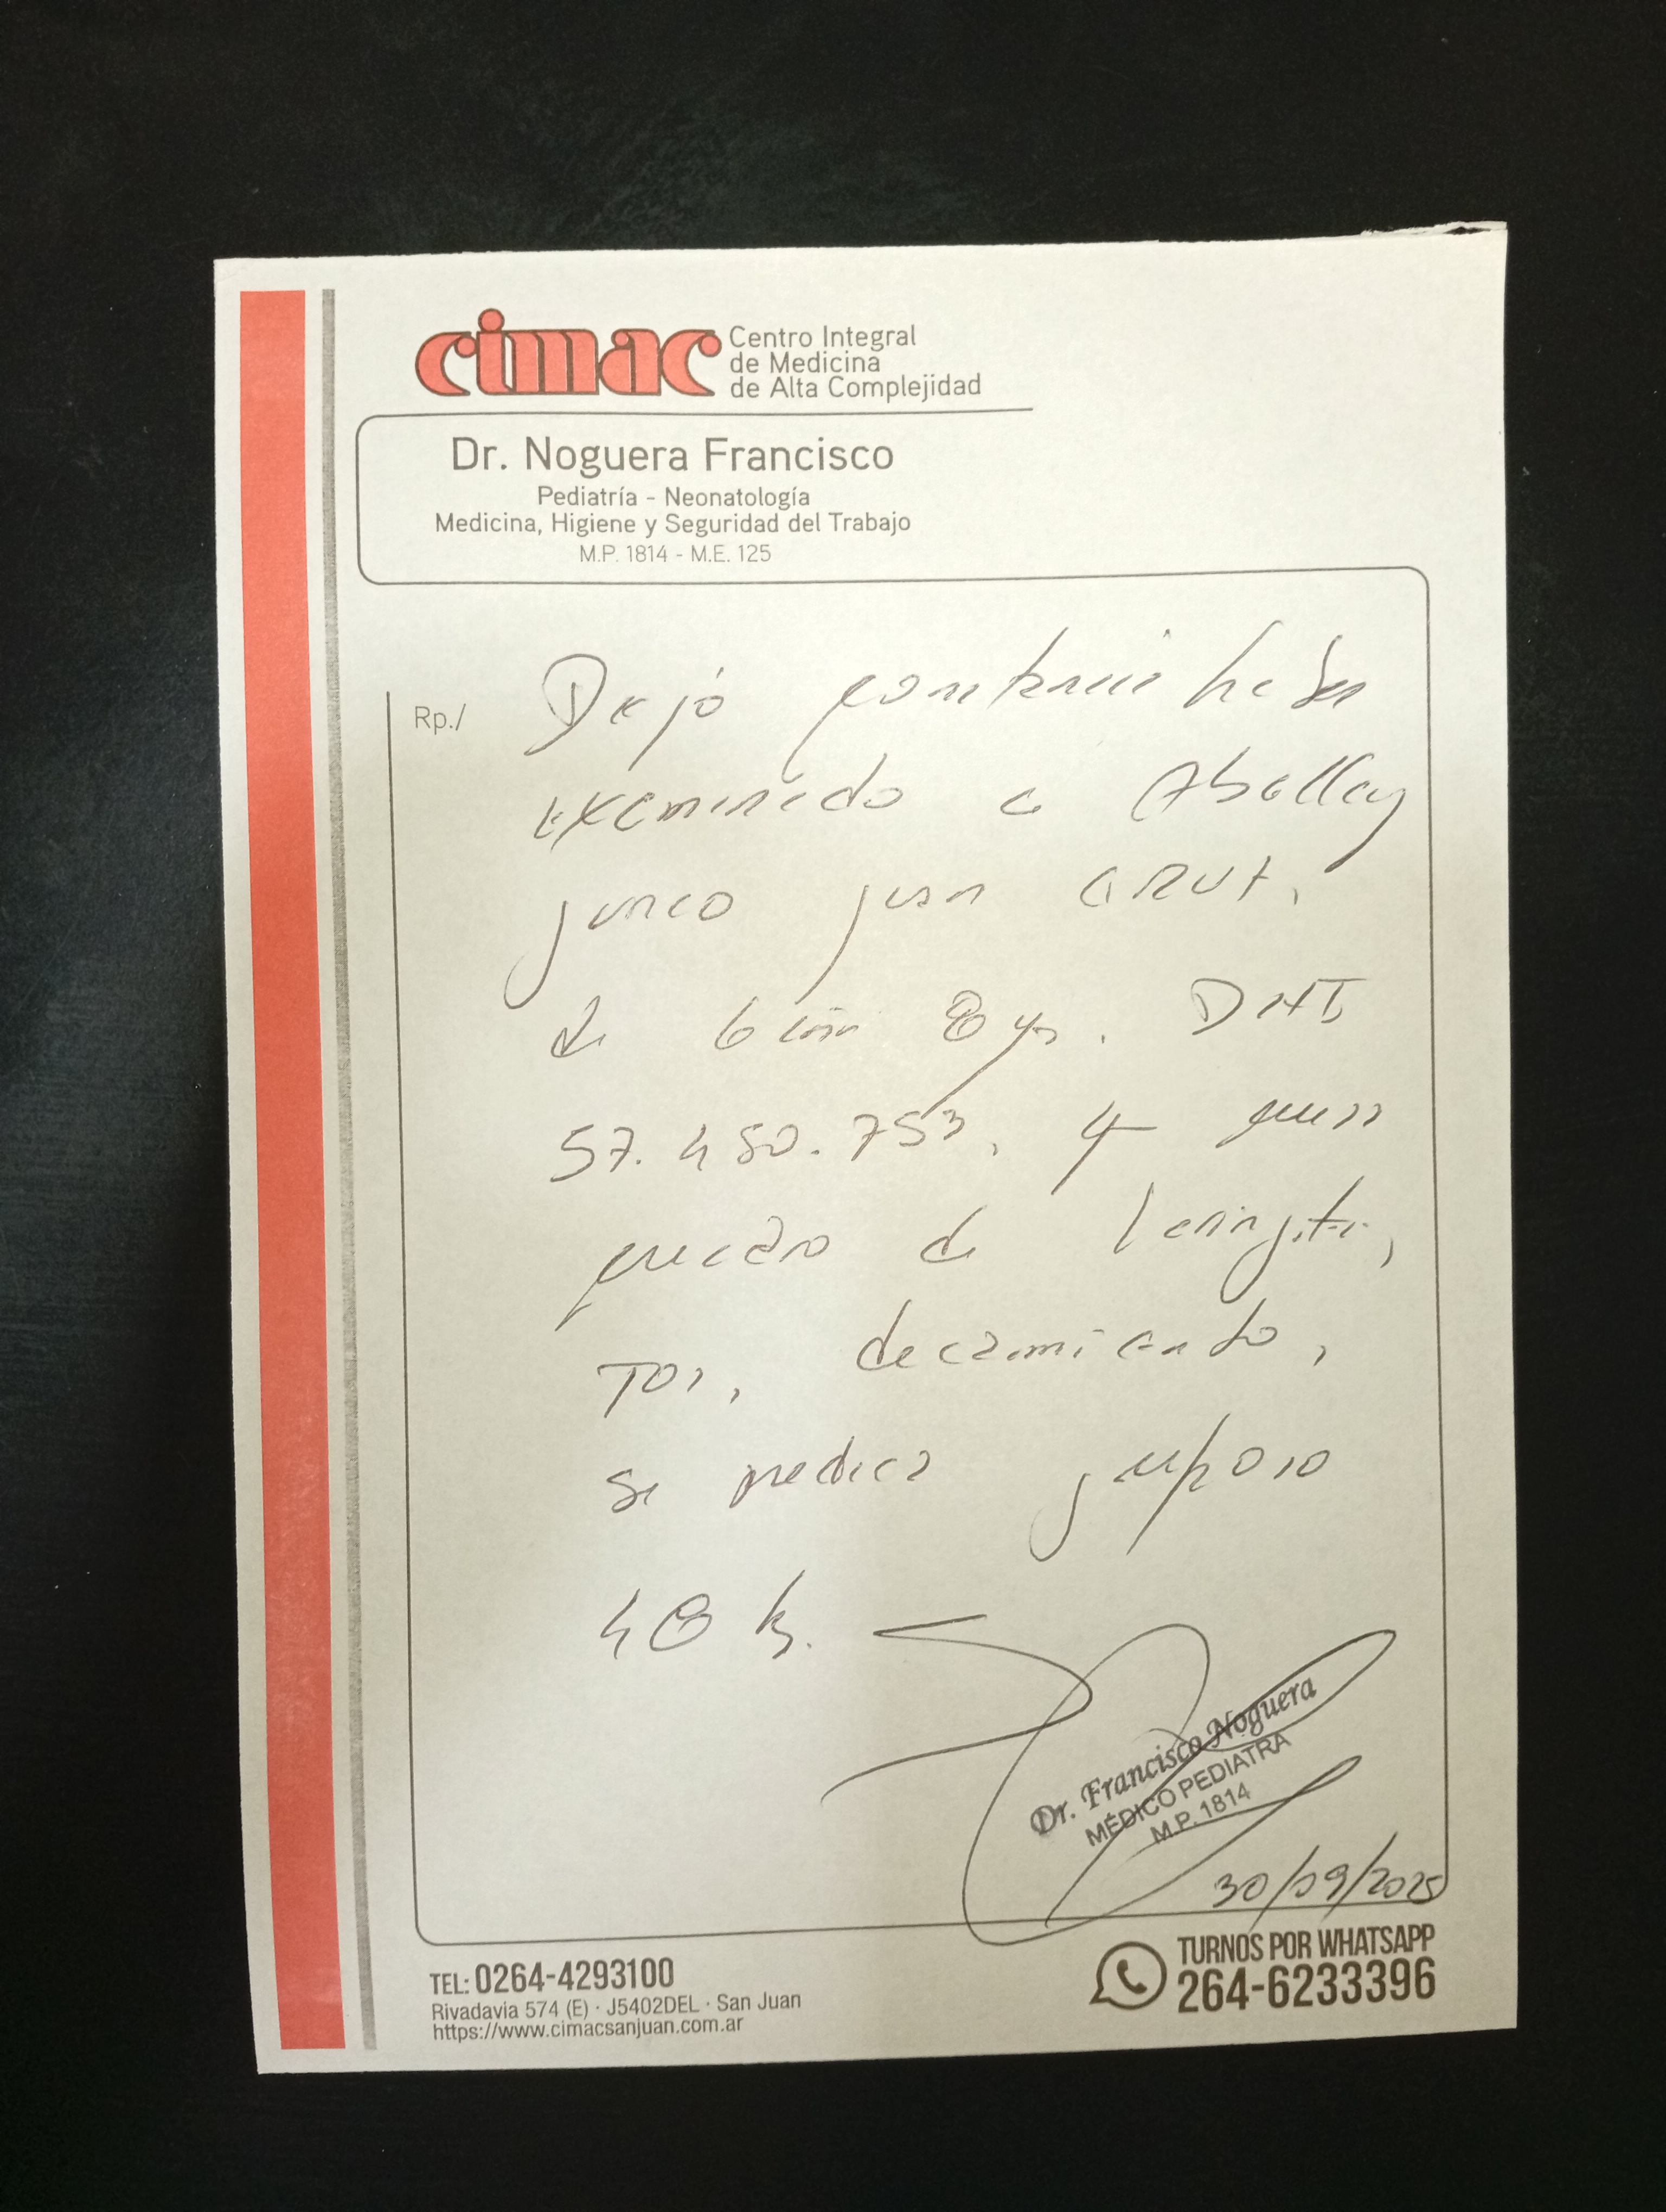 cimac
Centro Integral
de Medicina
de Alta Complejidad
Dr. Noguera Francisco
Pediatría - Neonatología
Medicina, Higiene y Seguridad del Trabajo
M.P. 1814 - M.E. 125
Rp./
Dejo constancia haber
examinado a Aballay
Junco Juan Cruz,
de DNI
57.450.753,
cuadro de laringitis,
Tos, decaimiento,
se medica reposo
48 hs.
Dr. Francisco Noguera
MÉDICO PEDIATRA
M.P. 1814
30/09/2025
TEL: 0264-4293100
Rivadavia 574 (E) · J5402DEL · San Juan
https://www.cimacsanjuan.com.ar
TURNOS POR WHATSAPP
264-6233396